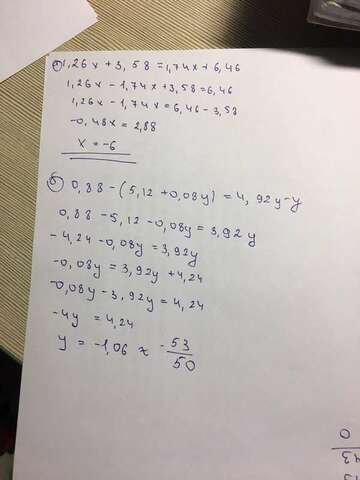 а) 1,26x + 3,58 = 1,74x + 6,46
1,26x - 1,74x + 3,58 = 6,46
1,26x - 1,74x = 6,46 - 3,58
-0,48x = 2,88
x = -6
б) 0,88 - (5,12 + 0,08y) = 4,92y - y
0,88 - 5,12 - 0,08y = 3,92y
-4,24 - 0,08y = 3,92y
-0,08y = 3,92y + 4,24
-0,08y - 3,92y = 4,24
-4y = 4,24
y = -1,06 x -53/50
0
43